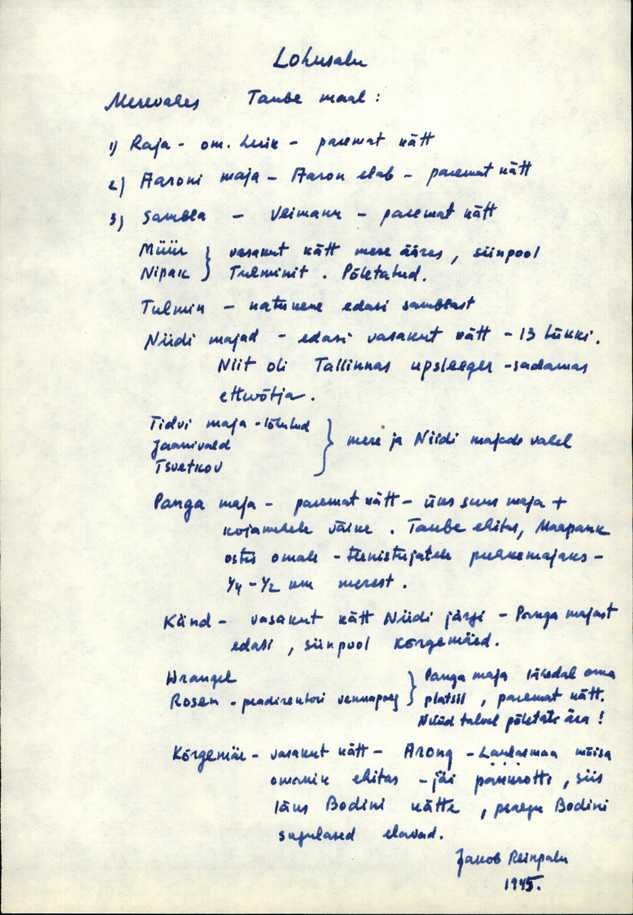 Lohusalu
Merevales Taube maal:
1) Raja - om. Luik - paremat kätt
2) Aaroni maja - Aaron elab - paremat kätt
3) Sambla - Veimann - paremat kätt
Müür } vasakut kätt mere ääres, siinpool
Nipak } Tulminit. Põletatud.
Tulmin - natukene edasi samblast
Niidi majad - edasi vasakut kätt - 13 tükki.
Niit oli Tallinnas upsleeger - sadamas
ettvõtja.
Tidvi maja - lõhutud
Jaanivald } mere ja Niidi majade vahel
Tsvetkov
Panga maja - paremat kätt - üks suur maja +
kojamehele väike. Taube ehitas, Maapank
ostis omale - teenistujatele puhkemajaks -
1/4 - 1/2 km merest.
Känd - vasakut kätt Niidi järgi - Panga majast
edasi, siinpool Kõrgemäed.
Wrangel } Panga maja lähedal oma
Rosen - peadirektori vennapoeg } platsil, paremat kätt.
Nüüd talvel põletati ära!
Kõrgemäe - vasakut kätt - Arong - Laulasmaa mõisa
omanik ehitas - jäi pankrotti, siis
läks Bodini kätte, praegu Bodini
sugulased elavad.
Jakob Reinpalu
1945.